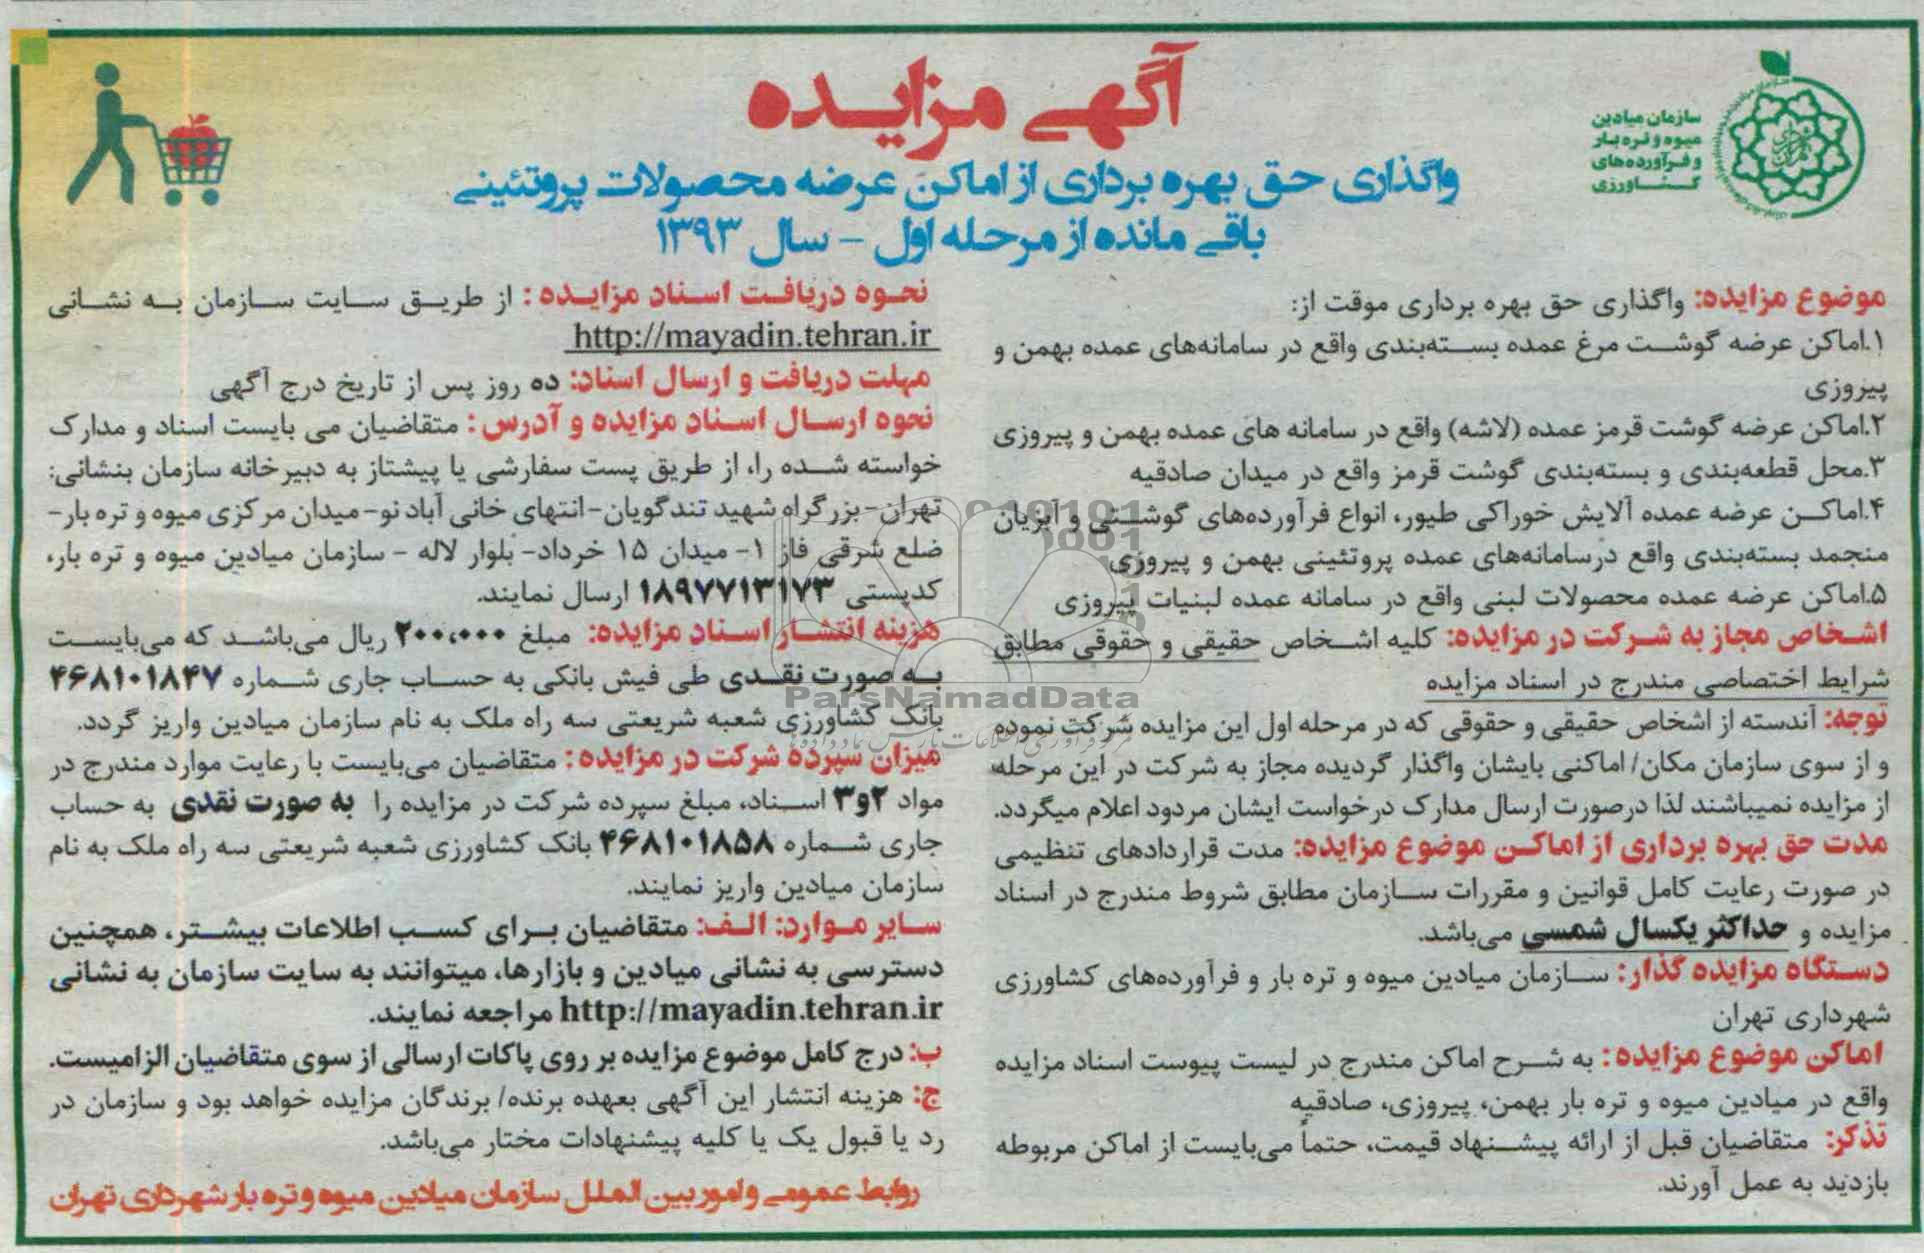 سازمان میادین
میوه و تره بار
و فرآورده‌های
کشاورزی
آگهی مزایده
واگذاری حق بهره برداری از اماکن عرضه محصولات پروتئینی
باقی مانده از مرحله اول – سال ۱۳۹۳
موضوع مزایده: واگذاری حق بهره برداری موقت از:
۱.اماکن عرضه گوشت مرغ عمده بسته‌بندی واقع در سامانه‌های عمده بهمن و
پیروزی
۲.اماکن عرضه گوشت قرمز عمده (لاشه) واقع در سامانه های عمده بهمن و پیروزی
۳.محل قطعه‌بندی و بسته‌بندی گوشت قرمز واقع در میدان صادقیه
۴.اماکن عرضه عمده آلایش خوراکی طیور، انواع فرآورده‌های گوشتی و آبزیان
منجمد بسته‌بندی واقع درسامانه‌های عمده پروتئینی بهمن و پیروزی
۵.اماکن عرضه عمده محصولات لبنی واقع در سامانه عمده لبنیات پیروزی
اشخاص مجاز به شرکت در مزایده: کلیه اشخاص حقیقی و حقوقی مطابق
شرایط اختصاصی مندرج در اسناد مزایده
توجه: آندسته از اشخاص حقیقی و حقوقی که در مرحله اول این مزایده شرکت نموده
و از سوی سازمان مکان/ اماکنی بایشان واگذار گردیده مجاز به شرکت در این مرحله
از مزایده نمیباشند لذا درصورت ارسال مدارک درخواست ایشان مردود اعلام میگردد.
مدت حق بهره برداری از اماکن موضوع مزایده: مدت قراردادهای تنظیمی
در صورت رعایت کامل قوانین و مقررات سازمان مطابق شروط مندرج در اسناد
مزایده و حداکثر یکسال شمسی می‌باشد.
دستگاه مزایده گذار: سازمان میادین میوه و تره بار و فرآورده‌های کشاورزی
شهرداری تهران
اماکن موضوع مزایده: به شرح اماکن مندرج در لیست پیوست اسناد مزایده
واقع در میادین میوه و تره بار بهمن، پیروزی، صادقیه
تذکر: متقاضیان قبل از ارائه پیشنهاد قیمت، حتماً می‌بایست از اماکن مربوطه
بازدید به عمل آورند.
نحوه دریافت اسناد مزایده : از طریق سایت سازمان به نشانی
http://mayadin.tehran.ir
مهلت دریافت و ارسال اسناد: ده روز پس از تاریخ درج آگهی
نحوه ارسال اسناد مزایده و آدرس : متقاضیان می بایست اسناد و مدارک
خواسته شده را، از طریق پست سفارشی یا پیشتاز به دبیرخانه سازمان بنشانی:
تهران-بزرگراه شهید تندگویان-انتهای خانی آباد نو-میدان مرکزی میوه و تره بار-
ضلع شرقی فاز ۱- میدان ۱۵ خرداد- بلوار لاله - سازمان میادین میوه و تره بار،
کدپستی ۱۸۹۷۷۱۳۱۷۳ ارسال نمایند.
هزینه انتشار اسناد مزایده: مبلغ ۲۰۰،۰۰۰ ریال می‌باشد که می‌بایست
به صورت نقدی طی فیش بانکی به حساب جاری شماره ۴۶۸۱۰۱۸۴۷
بانک کشاورزی شعبه شریعتی سه راه ملک به نام سازمان میادین واریز گردد.
میزان سپرده شرکت در مزایده : متقاضیان می‌بایست با رعایت موارد مندرج در
مواد ۲و۳ اسناد، مبلغ سپرده شرکت در مزایده را به صورت نقدی به حساب
جاری شماره ۴۶۸۱۰۱۸۵۸ بانک کشاورزی شعبه شریعتی سه راه ملک به نام
سازمان میادین واریز نمایند.
سایر موارد: الف: متقاضیان برای کسب اطلاعات بیشتر، همچنین
دسترسی به نشانی میادین و بازارها، میتوانند به سایت سازمان به نشانی
http://mayadin.tehran.ir مراجعه نمایند.
ب: درج کامل موضوع مزایده بر روی پاکات ارسالی از سوی متقاضیان الزامیست.
ج: هزینه انتشار این آگهی بعهده برنده/ برندگان مزایده خواهد بود و سازمان در
رد یا قبول یک یا کلیه پیشنهادات مختار می‌باشد.
روابط عمومی و امور بین الملل سازمان میادین میوه و تره بار شهرداری تهران
ParsNamadData